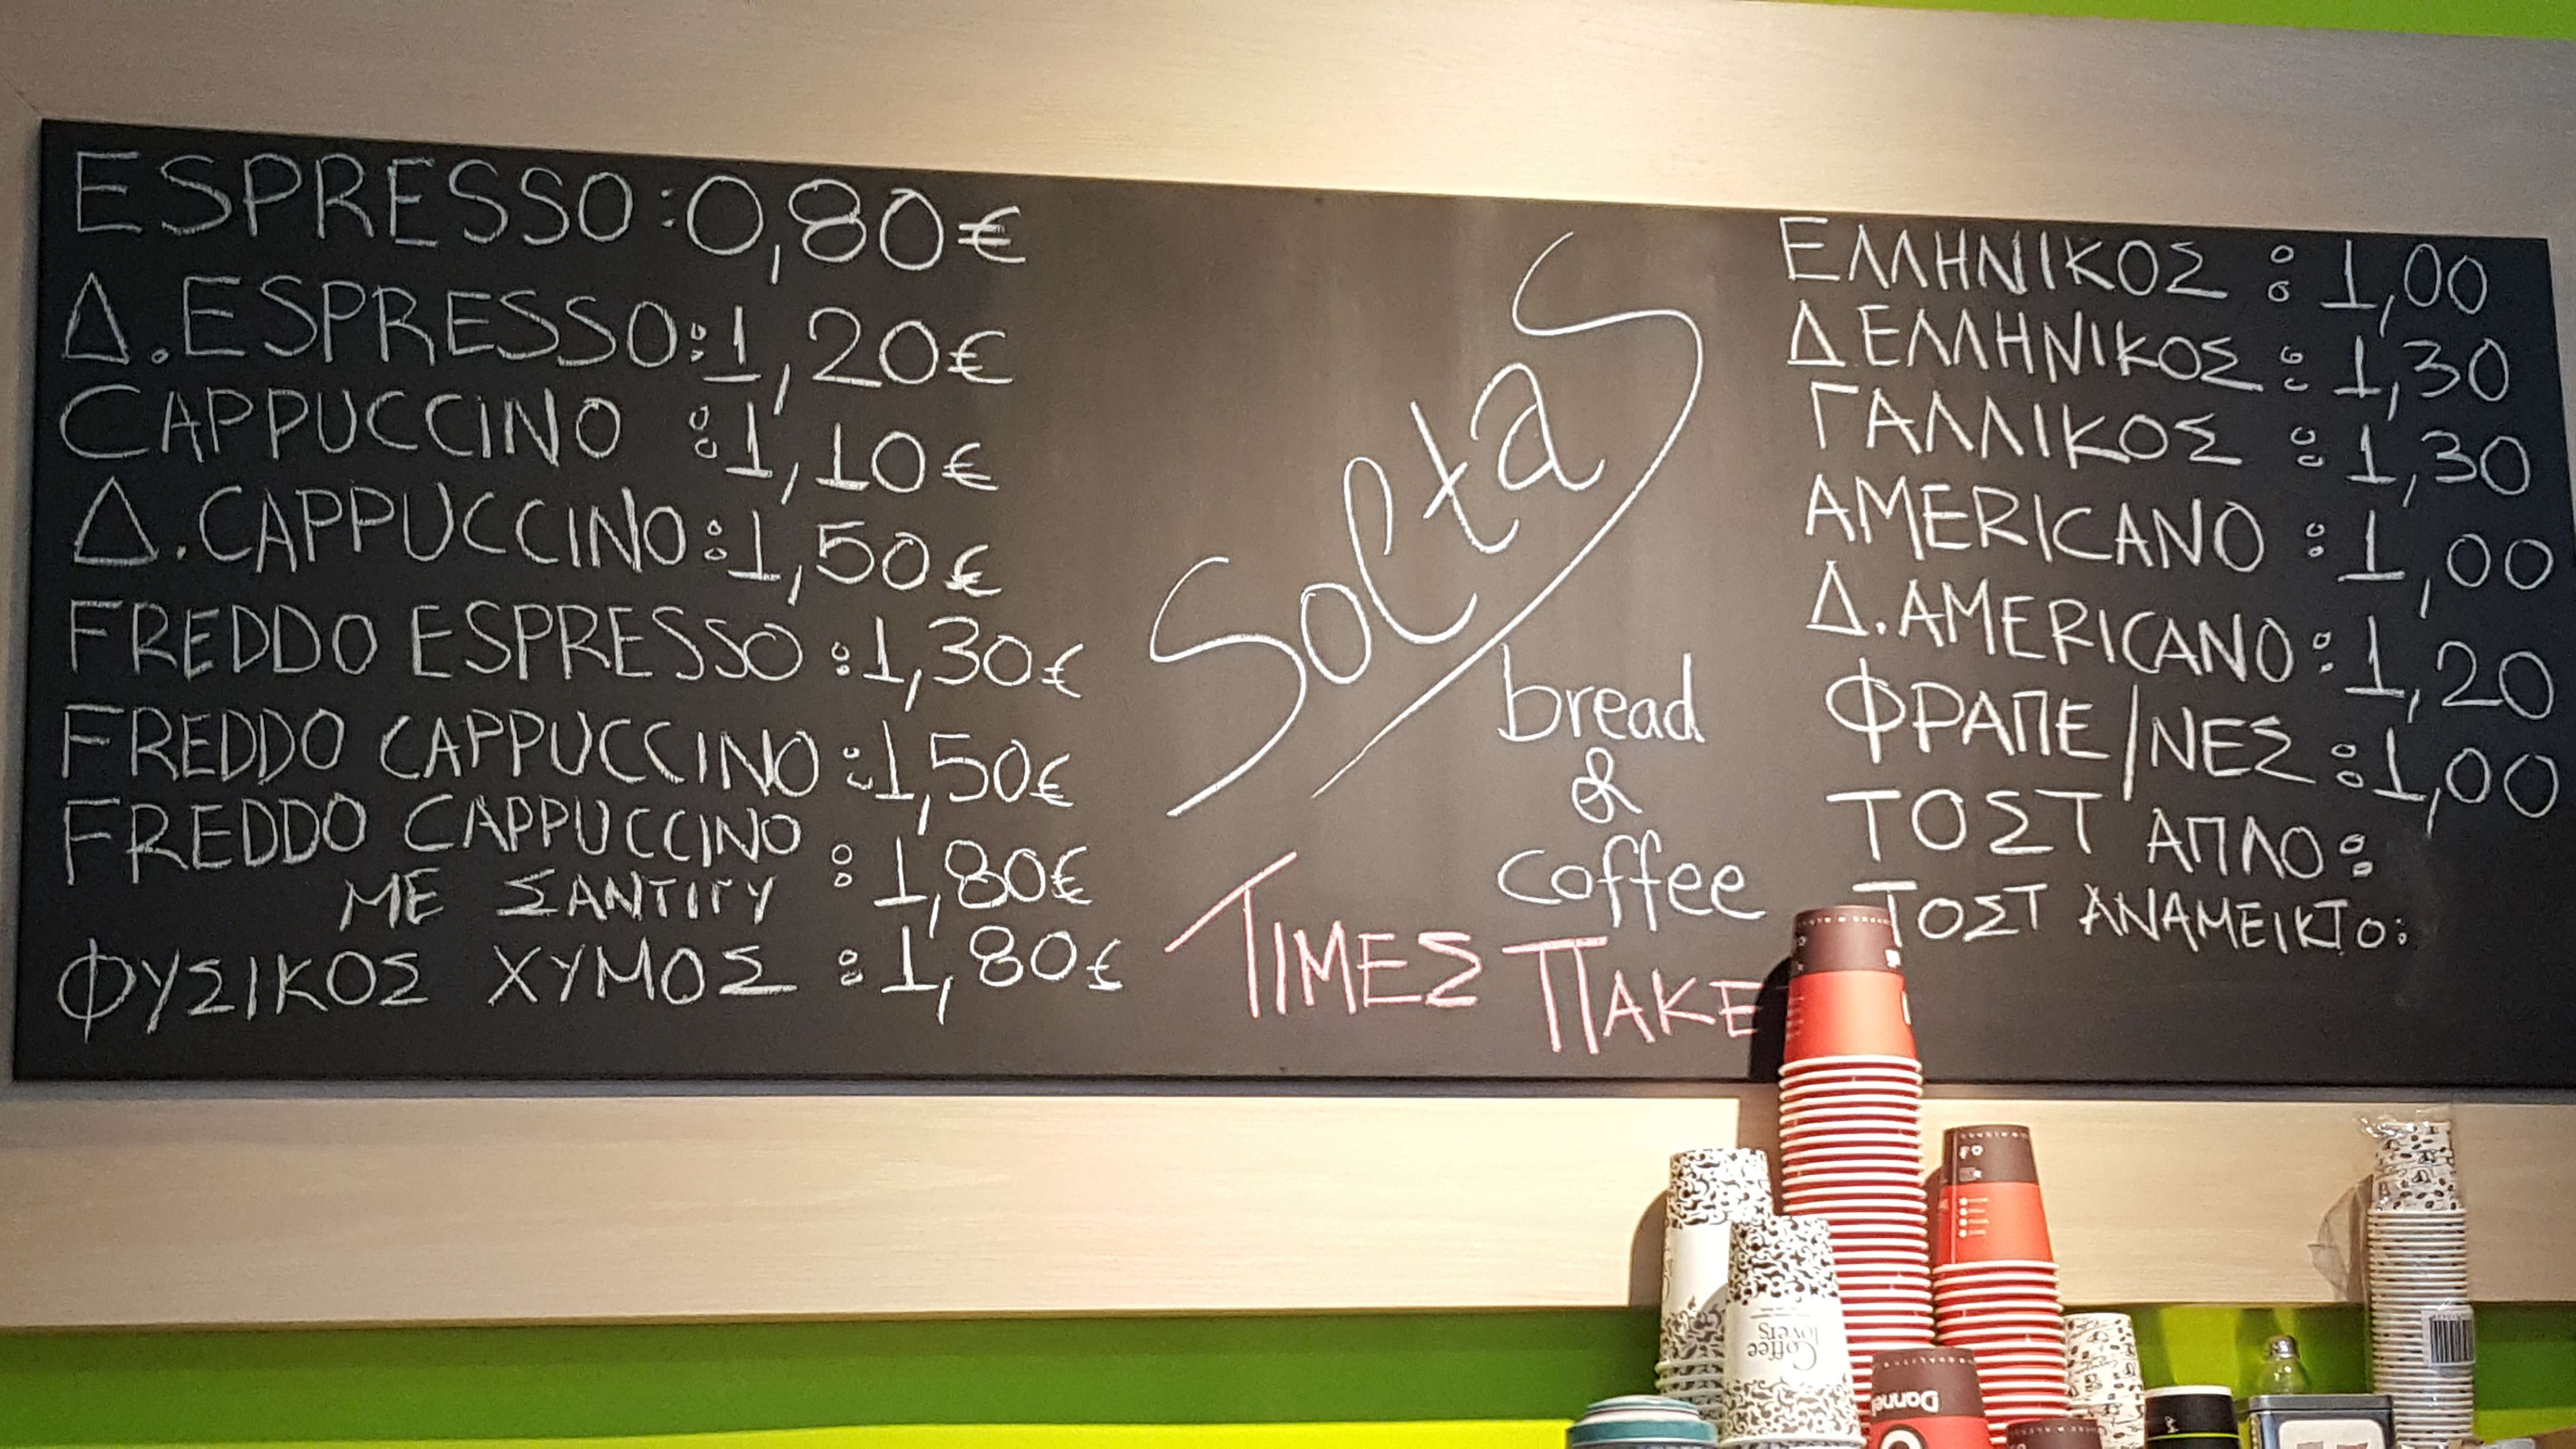 ESPRESSO:0,80€
Δ.ESPRESSO:1,20€
CAPPUCCINO :1,10€
Δ.CAPPUCCINO:1,50€
FREDDO ESPRESSO :1,30€
FREDDO CAPPUCCINO:1,50€
FREDDO CAPPUCCINO
ΜΕ ΣΑΝΤΙΓΥ :1,80€
ΦΥΣΙΚΟΣ ΧΥΜΟΣ :1,80€
SoltaS
bread
&
coffee
ΤΙΜΕΣ ΠΑΚΕ
ΕΛΛΗΝΙΚΟΣ :1,00
ΔΕΛΛΗΝΙΚΟΣ:1,30
ΓΑΛΛΙΚΟΣ :1,30
AMERICANO :1,00
Δ.AMERICANO:1,20
ΦΡΑΠΕ/ΝΕΣ:1,00
ΤΟΣΤ ΑΠΛΟ:
ΤΟΣΤ ΑΝΑΜΕΙΚΤΟ:
Coffee
lovers
Danne